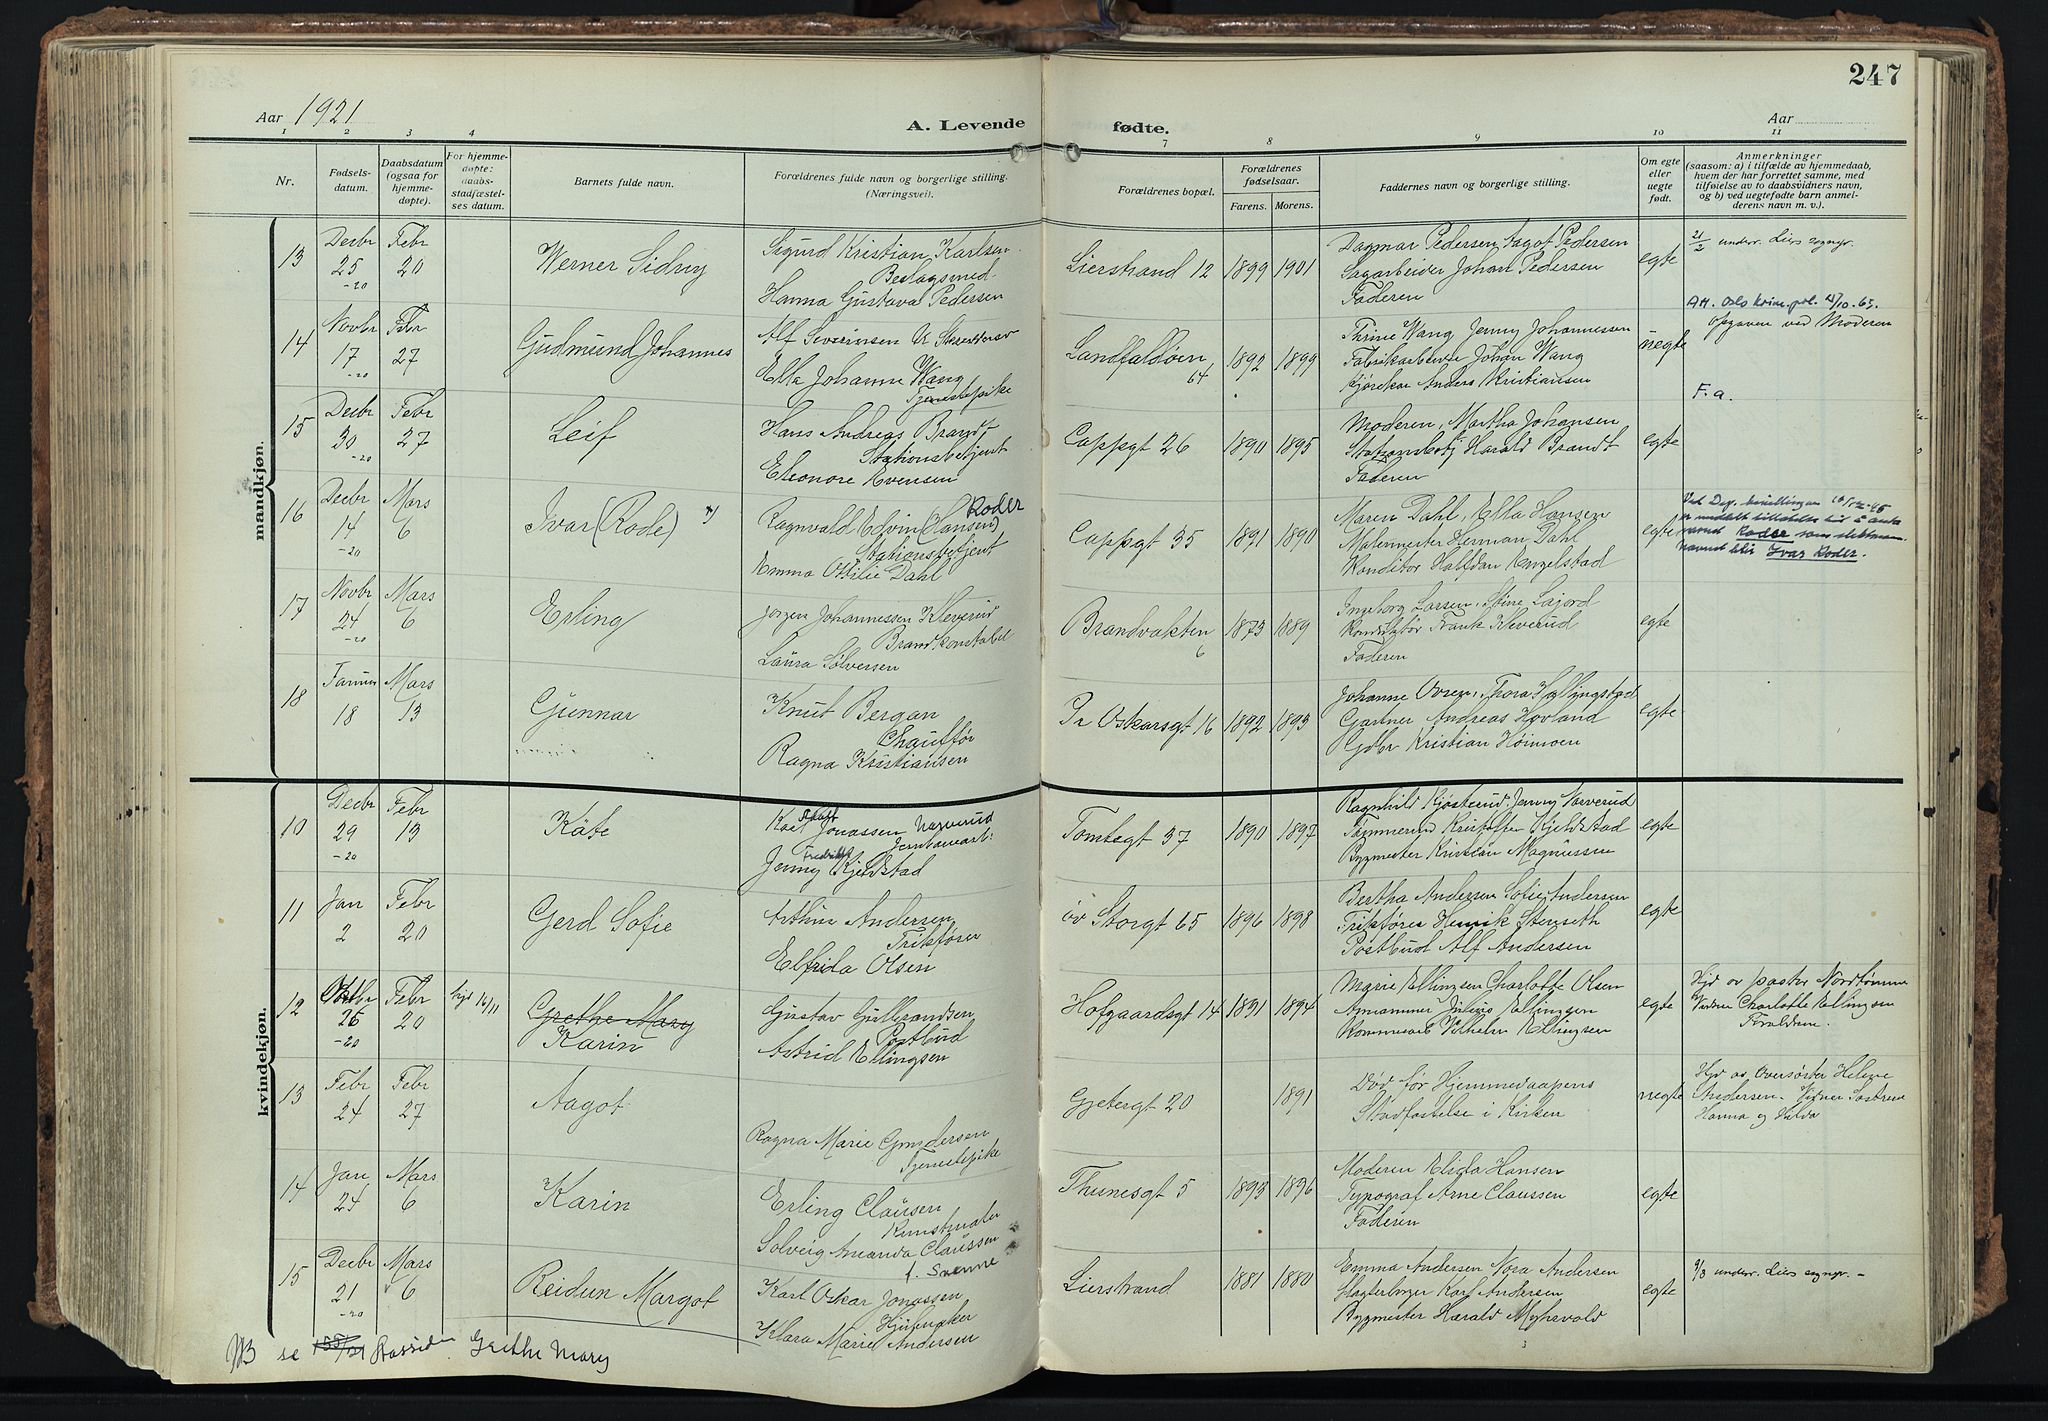 247
Aar 1921
A. Levende
fødte.
Aar
1 2 3 4
7 8 9 10 11
Nr.
Fødsels-
datum.
Daabsdatum
(ogsaa for
hjemme-
døpte).
For hjemme-
døpte:
daabs-
stadfæstel-
ses datum.
Barnets fulde navn.
Forældrenes fulde navn og borgerlige stilling.
(Næringsvei).
Forældrenes bopæl.
Forældrenes
fødselsaar.
Farens. Morens.
Faddernes navn og borgerlige stilling.
Om egte
eller
uegte
født.
Anmerkninger
(saasom: a) i tilfælde av hjemmedaab,
hvem der har forrettet samme, med
tilføielse av to daabsvidners navn,
og b) ved uegtefødte barn anmel-
derens navn m. v.).
mandkjøn.
13
Decbr
25
-20
Febr
20
Werner Sidny
Sigurd Kristian Karlsen
Beslagsmed
Hanna Gustava Pedersen
Lierstrand 12
1899 1901
Dagmar Pedersen, Aagot Pedersen
Sagarbeider Johan Pedersen
Faderen
egte
21/2 underr. Liers sognpr.
14
Novbr
17
-20
Febr
27
Gudmund Johannes
Alf Severinsen
Ella Johanne Wang
Tjenestepike
Landfaldøen
64
1892 1899
Thrine Wang, Jenny Johannessen
Fabrikarbeider Johan Wang
Kjørekar Anders Kristiansen
uegte
Opgaven ved Moderen
F.a.
15
Decbr
30
-20
Febr
27
Leif
Hans Andreas Brandt
Stationsbetjent
Eleonore Evensen
Cappgt 26
1890 1895
Moderen, Martha Johansen
Harald Brandt
Faderen
egte
16
Decbr
14
-20
Mars
6
Ivar (Rode)
Ragnvald Edvin (Hansen) Roder
Stationsbetjent
Emma Ottilie Dahl
Cappgt 35
1891 1890
Maren Dahl, Ella Hansen
Malermester Herman Dahl
Konditor Halfdan Engelstad
egte
navnet Roder som slektsnavn
Ivar Roder.
17
Novbr
24
-20
Mars
6
Erling
Jørgen Johannessen Kleverud
Brandkonstabel
Laura Sølversen
Brandvakten
6
1873 1889
Ingeborg Larsen, Stine Lajord
Konduktør Frank Kleverud
Faderen
egte
18
Januar
18
Mars
13
Gunnar
Knut Bergan
Chauffør
Ragna Kristiansen
Pr Oskarsgt 16
1892 1893
Johanne Ovren, Thora Hallingstad
Gartner Andreas Hovland
Gdbr Kristian Høimoen
egte
kvindekjøn.
10
Decbr
29
-20
Febr
13
Käte
Karl Jonassen Narverud
Jernbanearb.
Jenny Fredrikke Kjeldstad
Tomtegt 37
1890 1897
Ragnhild Kjøsterud, Jenny Narverud
Tømmermd Kristoffer Kjeldstad
Bygmester Kristian Magnussen
egte
11
Jan
2
Febr
20
Gerd Sofie
Arthur Andersen
Trikfører
Elfrida Olsen
øv Storgt 65
1896 1898
Bertha Andersen Sofie Andersen
Trikfører Henrik Stenseth
Postbud Alf Andersen
egte
12
Oktbr
26
-20
Febr
20
hjd 16/11
Grethe Mary
Karin
Gustav Gulbrandsen
Postbud
Astrid Ellingsen
Hofgaardsgt 14
1891 1894
Marie Ellingsen Charlotte Olsen
Julius Ellingsen
Vilhelm Ellingsen
egte
Hjd av pastor Nordtømme
Vidner Charlotte Ellingsen
Forældrene.
13
Febr
24
Febr
27
Aagot
Ragna Marie Gundersen
Tjenestepike
Gjetergt 20
1891
Død før Hjemmedaapens
Stadfæstelse i Kirken
uegte
Hjd av Oversøster Helene
Andersen. Vidner Søstrene
Hanna og Hulda
14
Jan
24
Mars
6
Karin
Erling Clausen
Kunstmaler
Solveig Amanda Claussen
f. Svenne
Thunesgt 5
1893 1896
Moderen Elida Hansen
Typograf Arne Claussen
Faderen
egte
15
Decbr
21
-20
Mars
6
Reidun Margot
Karl Oskar Jonassen
Hjulmaker
Klara Marie Andersen
Lierstrand
1881 1880
Emma Andersen Nora Andersen
Slagterborger Karl Andersen
Bygmester Harald Myhrvold
egte
9/3 underr. Liers sognpr. -
NB se Grethe Mary
3